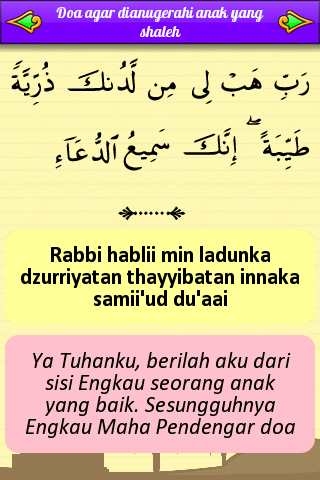 Doa agar dianugerahi anak yang
shaleh
رَبِّ هَبْ لِى مِن لَّدُنكَ ذُرِّيَّةً
طَيِّبَةً ۖ إِنَّكَ سَمِيعُ ٱلدُّعَآءِ
Rabbi hablii min ladunka
dzurriyatan thayyibatan innaka
samii'ud du'aai
Ya Tuhanku, berilah aku dari
sisi Engkau seorang anak
yang baik. Sesungguhnya
Engkau Maha Pendengar doa